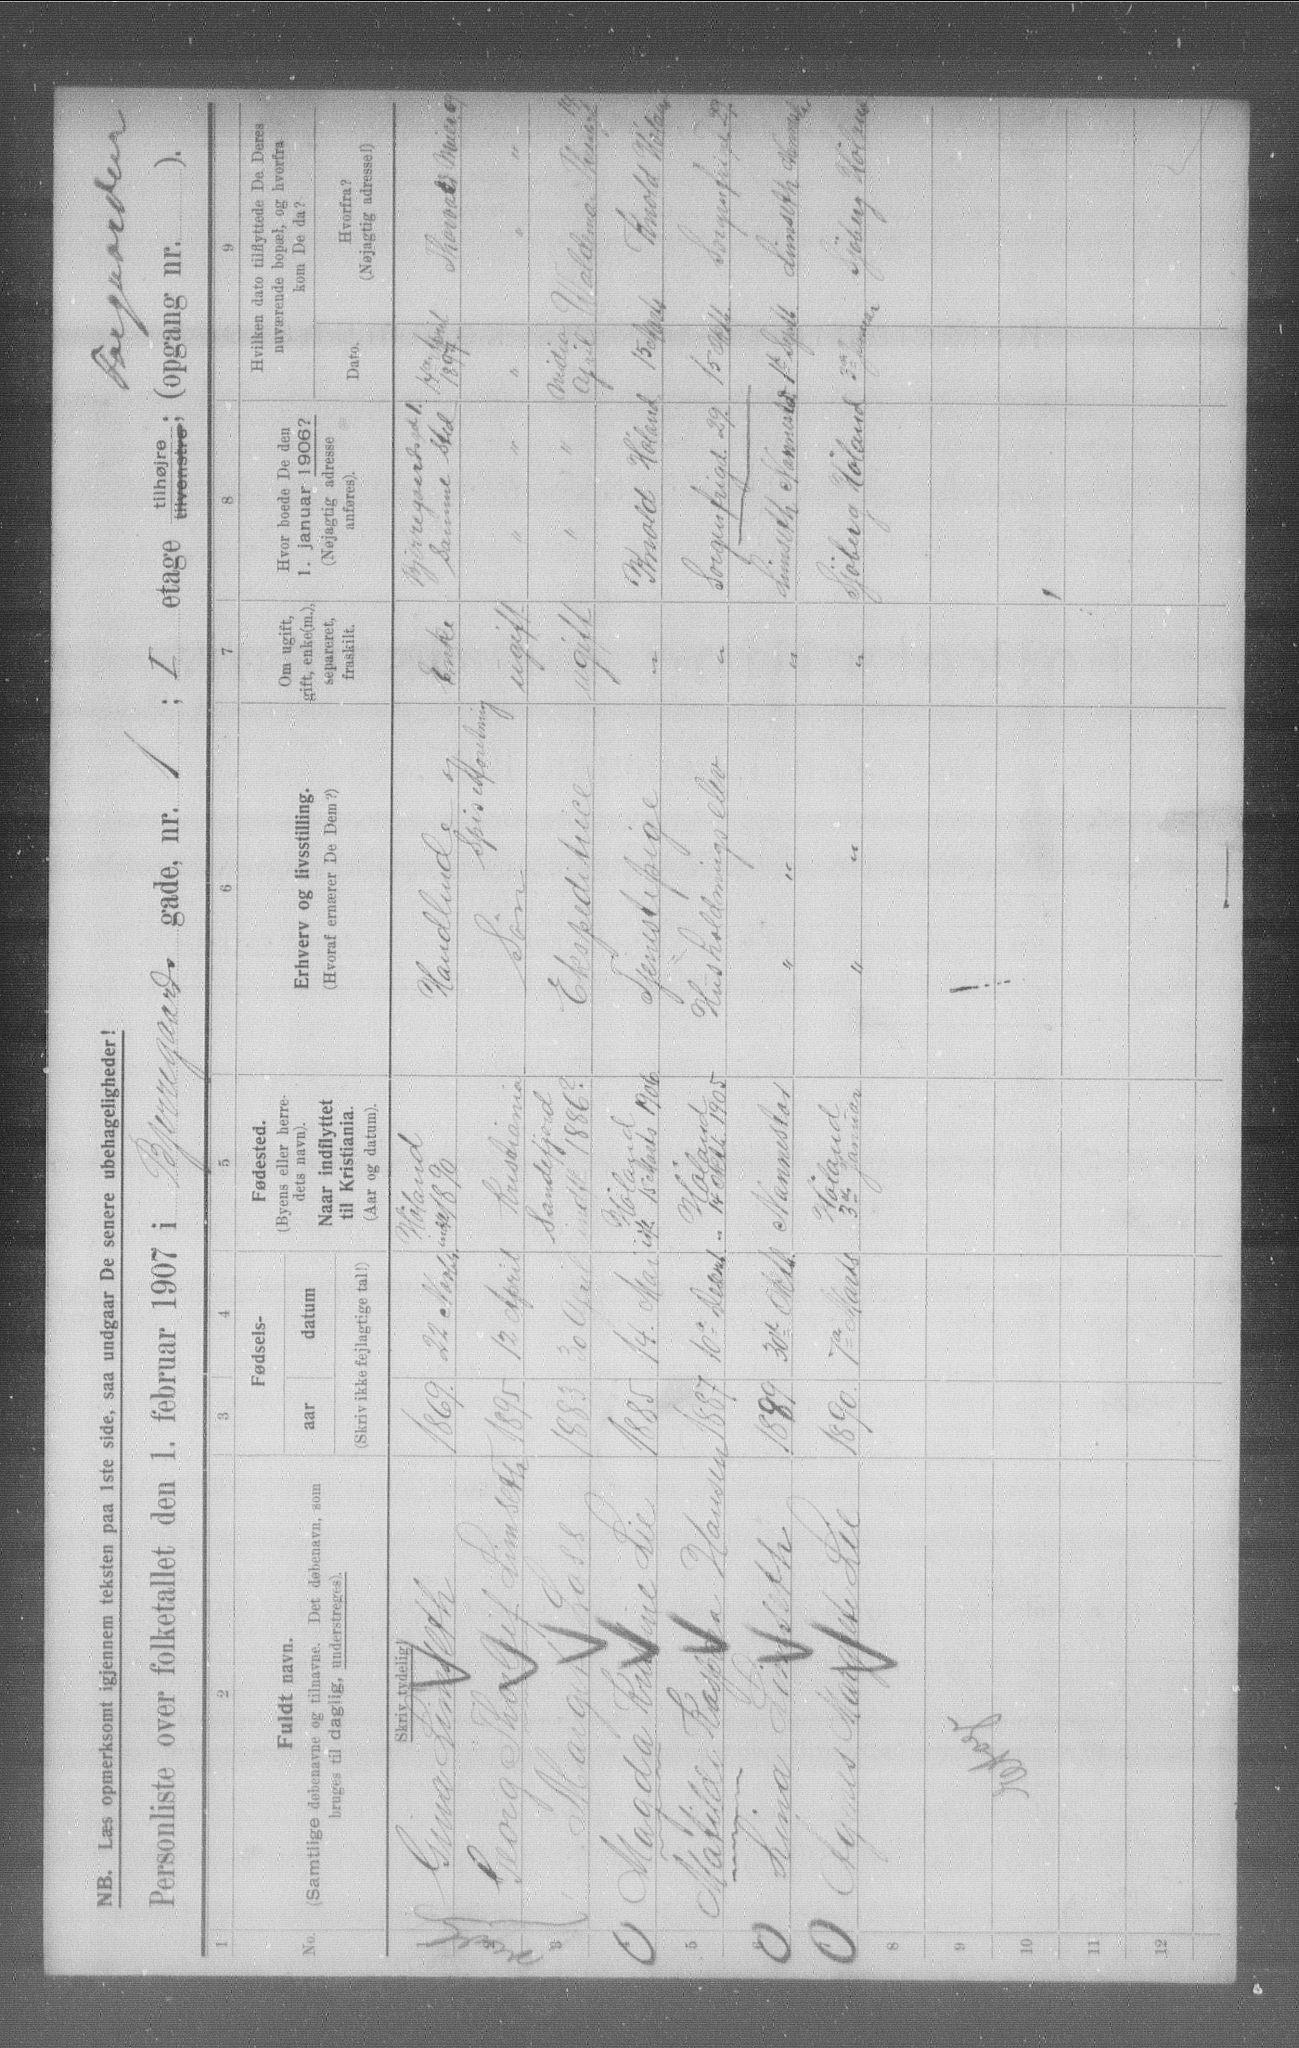 NB. Læs opmerksomt igjennem teksten paa 1ste side, saa undgaar De senere ubehageligheder!
Personliste over folketallet den 1. februar 1907 i Bjerregaards gade, nr. 1 ; I etage tilhøjre tilvenstre; (opgang nr. ).
1 2 3 4 5 6 7 8 9
No.
Fuldt navn.
(Samtlige døbenavne og tilnavne. Det døbenavn, som
bruges til daglig, understreges).
Skriv tydelig!
Fødsels-
aar datum
(Skriv ikke fejlagtige tal!)
Fødested.
(Byens eller herre-
dets navn).
Naar indflyttet
til Kristiania.
(Aar og datum).
Erhverv og livsstilling.
(Hvoraf ernærer De Dem?)
Om ugift,
gift, enke(m.),
separeret,
fraskilt.
Hvor boede De den
1. januar 1906?
(Nøjagtig adresse
anføres).
Hvilken dato tilflyttede De Deres
nuværende bopæl, og hvorfra
kom De da?
Dato.
Hvorfra?
(Nøjagtig adresse!)
1 Gina Limseth 1869. 22 Høland 1890 Handlende og Spiseforretning Enke samme sted 17de April 1897
2 Georg Thorleif Limseth 1895 12 April Kristiania Søn ugift " " " " "
3 Margit 1883 30 April Sandefjord 1886? Ekspeditrice ugift " " Medio April Waldemar
Magda Lie 1885 14. Mai Høland 1906 Tjenestepige " Høland 15
5 Matilde Hansen 1887 10de Høland 1905 Husholdningselev " Sorgenfrigd. 29 15 Sorgenfrigd. 29
6 Limseth 1889 30te Nannestad " " " Limseth Nannestad Limseth
Agnes Lie 1890. 7de Marts Høland 3die januar " " " Sjøberg Høland januar Sjøberg Høland
8
9
10
11
12